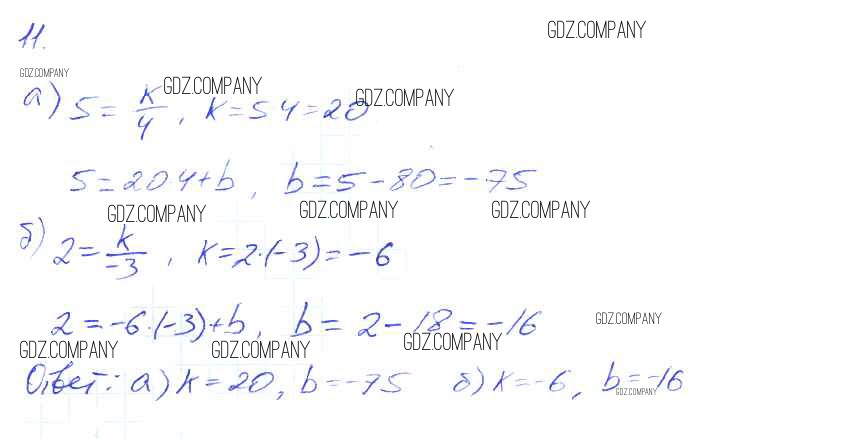 11.
GDZ.COMPANY
GDZ.COMPANY
а) 5 = k/4, k = 5 4 = 20
GDZ.COMPANY
GDZ.COMPANY
5 = 20·4 + b, b = 5 - 80 = -75
GDZ.COMPANY GDZ.COMPANY GDZ.COMPANY
б) 2 = k/-3, k = 2·(-3) = -6
2 = -6·(-3) + b, b = 2 - 18 = -16
GDZ.COMPANY
GDZ.COMPANY GDZ.COMPANY GDZ.COMPANY
Ответ: а) k = 20, b = -75 б) k = -6, b = -16
GDZ.COMPANY